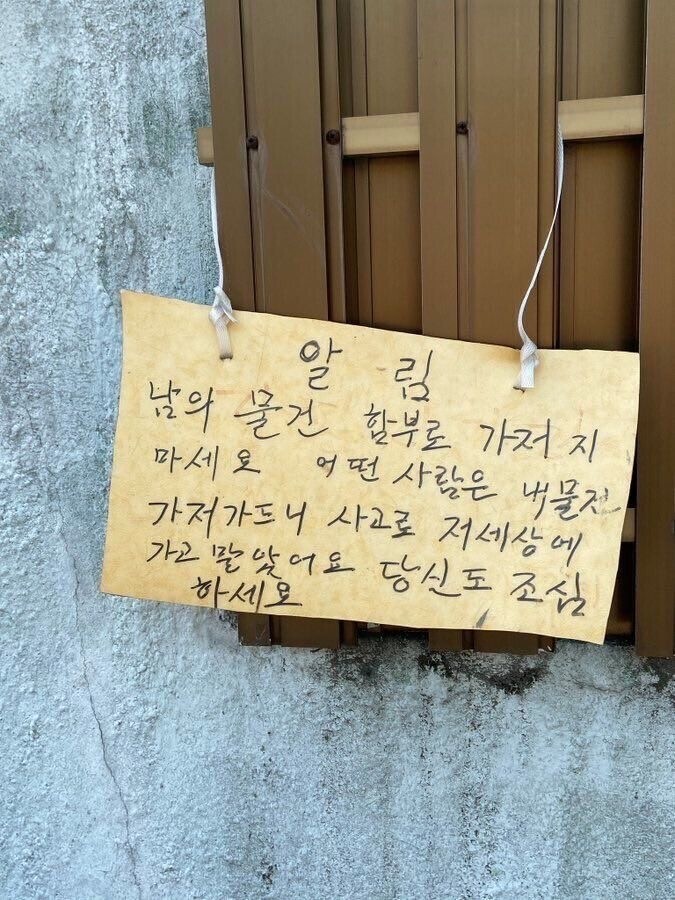 알림
남의 물건 함부로 가저지
마세요 어떤 사람은 내물건
가저가드니 사고로 저세상에
가고 말았어요 당신도 조심
하세요